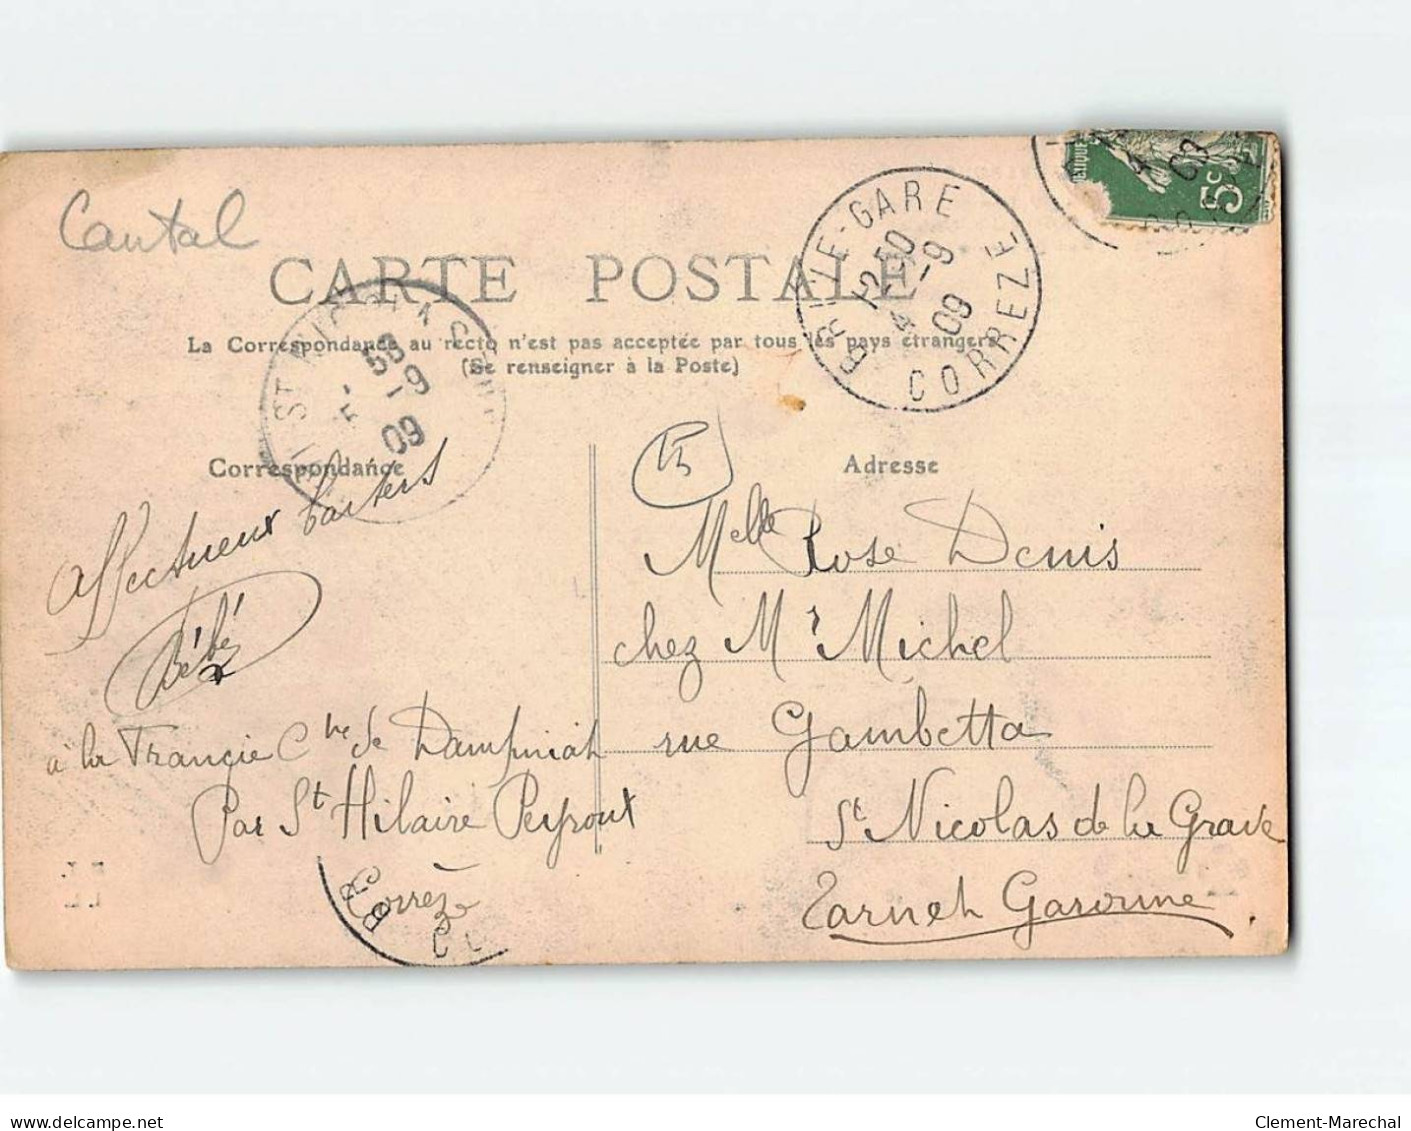 Cantal
CARTE POSTALE
La Correspondance au recto n'est pas acceptée par tous les pays étrangers
(Se renseigner à la Poste)
BRIVE-GARE
12-50
4-9
09
CORREZE
5c
ST NICOLAS
5-9
09
Correspondance
Adresse
15
Affectueux baisers
Bébé
à la Françie Cne de Dampniat
Par St Hilaire Peyroux
Corrèze
Melle Rose Denis
chez Mr Michel
rue Gambetta
St Nicolas de la Grave
Tarn et Garonne
delcampe.net
Clement-Marechal